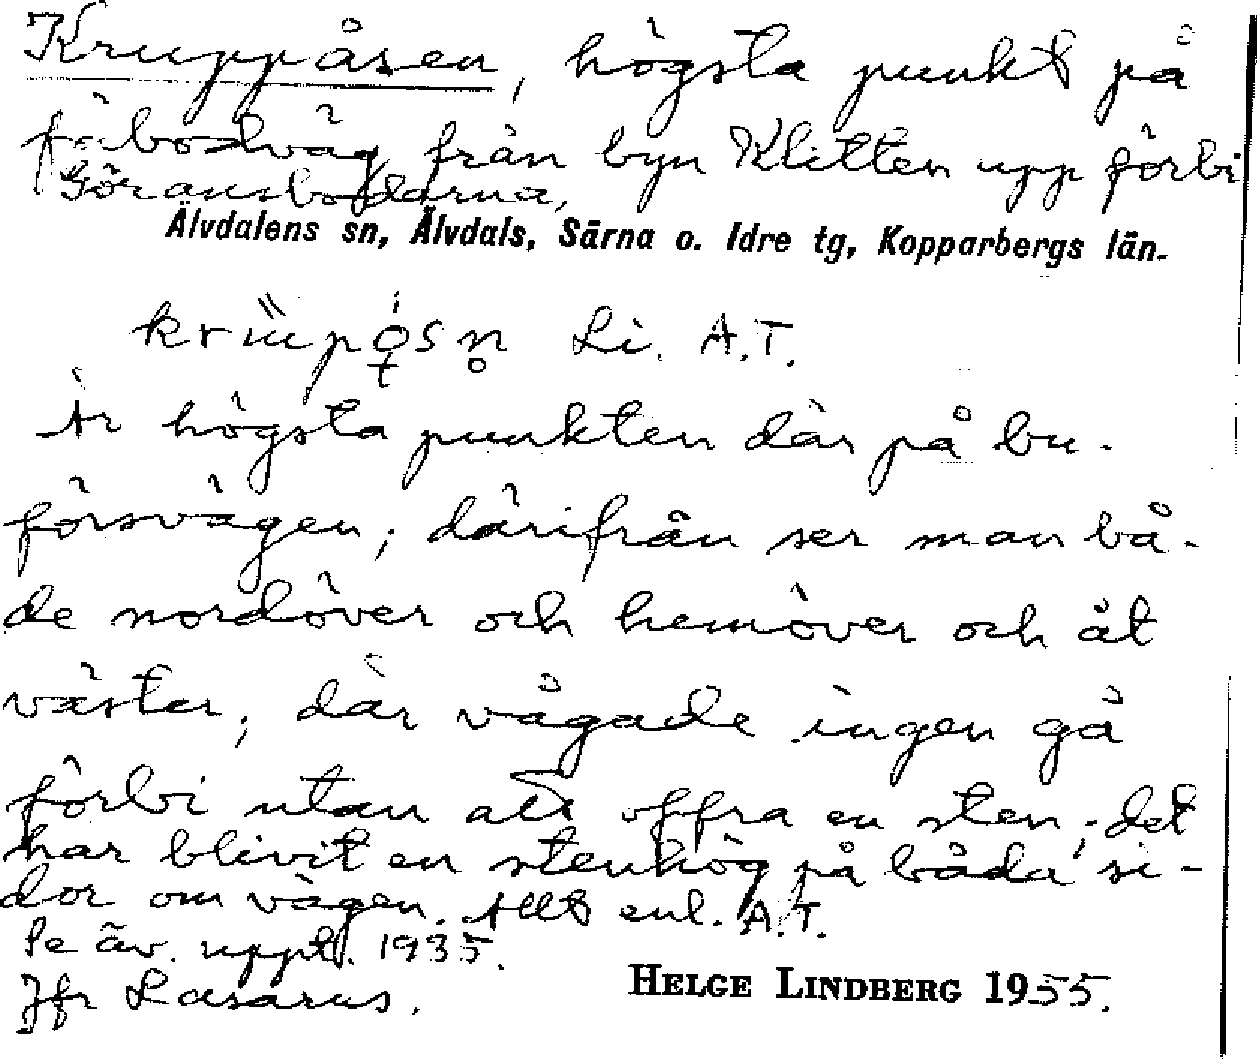 Kruppåsen, högsta punkt på
fäbodväg från byn Klitten upp förbi
Göransbodarna,
Älvdalens sn, Älvdals, Särna o. Idre tg, Kopparbergs län.
Li. A.T.
Är högsta punkten där på bu-
försvägen; därifrån ser man bå-
de nordöver och hemöver och åt
väster; där vågade ingen gå
förbi utan att offra en sten; det
har blivit en stenhög på båda si-
dor om vägen. Allt enl. A.T.
Se äv. uppt. 1935.
Jfr Lasarus.
HELGE LINDBERG 1955.